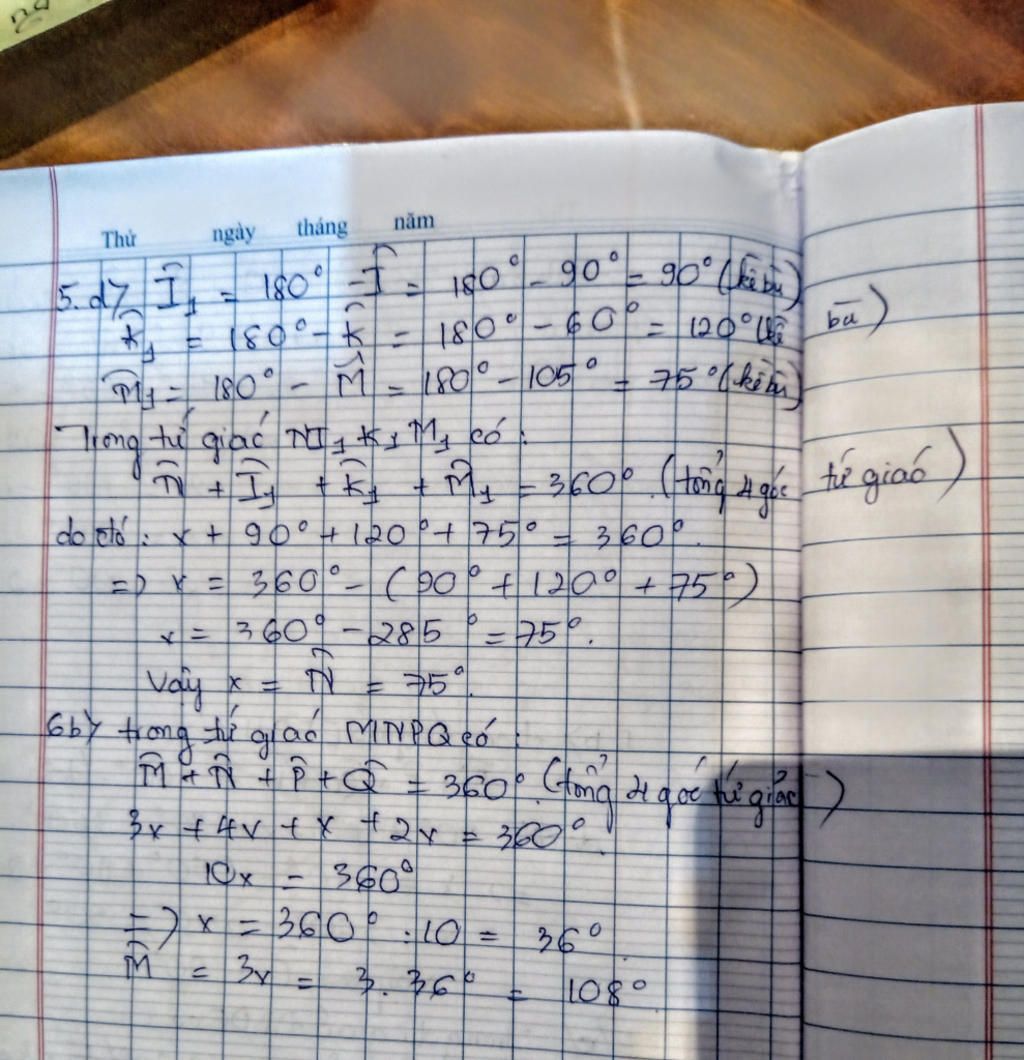 Thứ ngày tháng năm
5.d) Î₁ = 180° - Î = 180° - 90° = 90° (kề bù)
K̂₁ = 180° - K̂ = 180° - 60° = 120° (kề bù)
M̂₁ = 180° - M̂ = 180° - 105° = 75° (kề bù)
Trong tứ giác NI₁K₁M₁ có:
N̂ + Î₁ + K̂₁ + M̂₁ = 360°. (tổng 4 góc tứ giác)
do đó: x + 90° + 120° + 75° = 360°.
=> x = 360° - (90° + 120° + 75°)
x = 360° - 285° = 75°.
Vậy x = N̂ = 75°.
6b) trong tứ giác MNPQ có:
M̂ + N̂ + P̂ + Q̂ = 360°. (tổng 4 góc tứ giác)
3x + 4x + x + 2x = 360°.
10x = 360°
=> x = 360° : 10 = 36°.
M̂ = 3x = 3. 36° = 108°